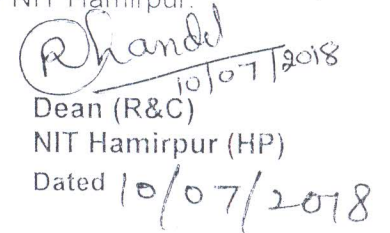 NIT Hamirpur.
Chandel
10/07/2018
Dean (R&C)
NIT Hamirpur (HP)
Dated 10/07/2018